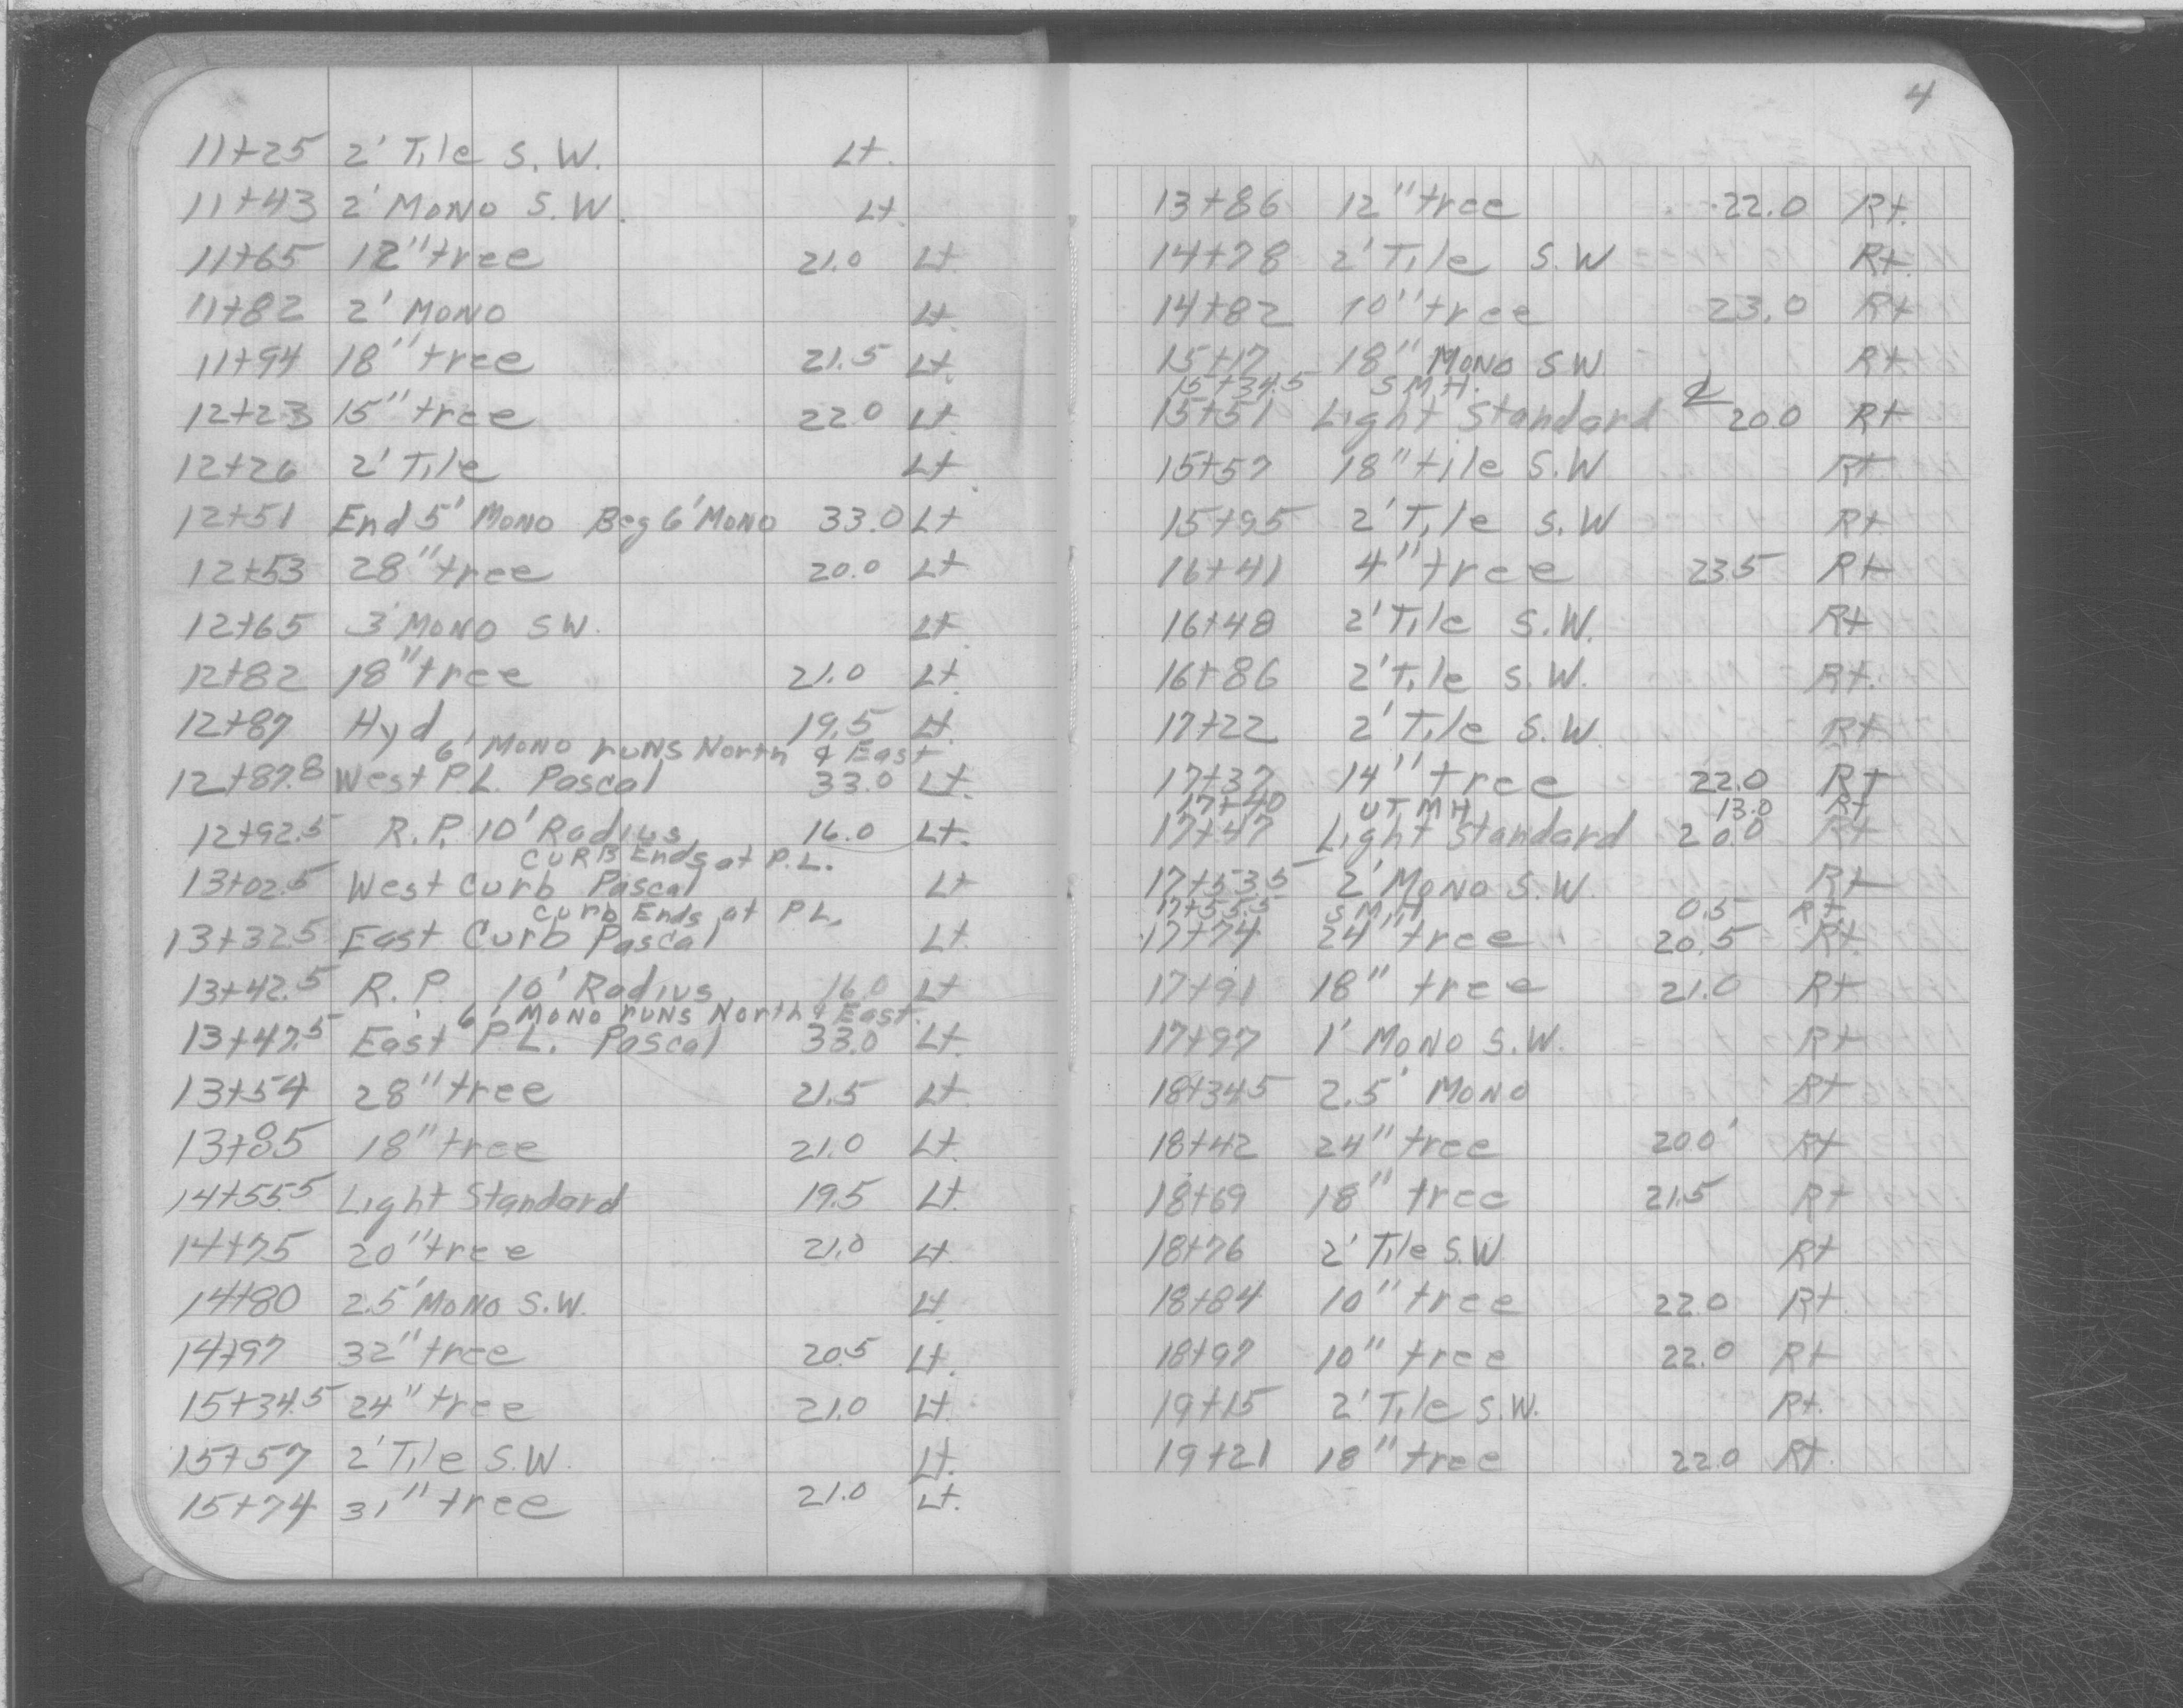 11+25 2' Tile S.W. Lt.
11+43 2' Mono S.W. Lt.
11+65 12" tree 21.0 Lt.
11+82 2' Mono Lt.
11+94 18" tree 21.5 Lt.
12+23 15" tree 22.0 Lt.
12+26 2' Tile Lt.
12+51 End 5' Mono Beg 6' Mono 33.0 Lt
12+53 28" tree 20.0 Lt
12+65 3' Mono SW. Lt.
12+82 18" tree 21.0 Lt.
12+87 Hyd 19.5 Lt.
6' Mono runs North & East
12+87.8 West P.L. Pascal 33.0 Lt.
12+92.5 R.P. 10' Radius 16.0 Lt.
Curb Ends at P.L.
13+02.5 West Curb Pascal Lt
Curb Ends at P.L.
13+32.5 East Curb Pascal Lt.
13+42.5 R.P. 10' Radius 16.0 Lt
6' Mono runs North & East.
13+47.5 East P.L. Pascal 33.0 Lt.
13+54 28" tree 21.5 Lt.
13+85 18" tree 21.0 Lt.
14+55.5 Light Standard 19.5 Lt.
14+75 20" tree 21.0 Lt.
14+80 2.5' Mono S.W. Lt.
14+97 32" tree 20.5 Lt.
15+34.5 24" tree 21.0 Lt.
15+57 2' Tile S.W. Lt.
15+74 31" tree 21.0 Lt.
4
13+86 12" tree 22.0 Rt.
14+78 2' Tile S.W Rt.
14+82 10" tree 23.0 Rt
15+17 18" Mono SW Rt.
15+34.5 S.M.H. ℄
15+51 Light Standard 20.0 Rt
15+57 18" tile S.W Rt.
15+95 2' Tile S.W Rt
16+41 4" tree 23.5 Rt
16+48 2' Tile S.W. Rt
16+86 2' Tile S.W. Rt.
17+22 2' Tile S.W. Rt.
17+37 14" tree 22.0 Rt
17+40 UT MH 13.0 Rt
17+47 Light Standard 20.0 Rt
17+53.5 2' Mono S.W. Rt
17+55.5 S.M.H 0.5 Rt
17+74 24" tree 20.5 Rt.
17+91 18" tree 21.0 Rt
17+97 1' Mono S.W. Rt
18+34.5 2.5' Mono Rt
18+42 24" tree 20.0' Rt
18+69 18" tree 21.5 Rt
18+76 2' Tile S.W. Rt
18+84 10" tree 22.0 Rt.
18+97 10" tree 22.0 Rt
19+15 2' Tile S.W. Rt.
19+21 18" tree 22.0 Rt.